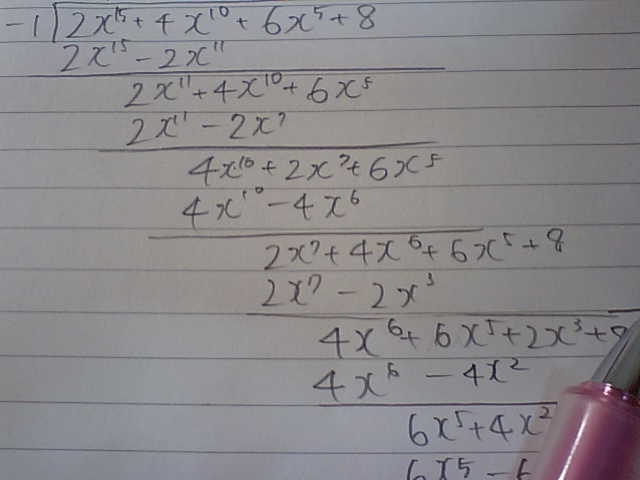 -1 2x¹⁵ + 4x¹⁰ + 6x⁵ + 8
2x¹⁵ - 2x¹¹
2x¹¹ + 4x¹⁰ + 6x⁵
2x¹¹ - 2x⁷
4x¹⁰ + 2x⁷ + 6x⁵
4x¹⁰ - 4x⁶
2x⁷ + 4x⁶ + 6x⁵ + 8
2x⁷ - 2x³
4x⁶ + 6x⁵ + 2x³ +
4x⁶ - 4x²
6x⁵ + 4x²
6x⁵ -